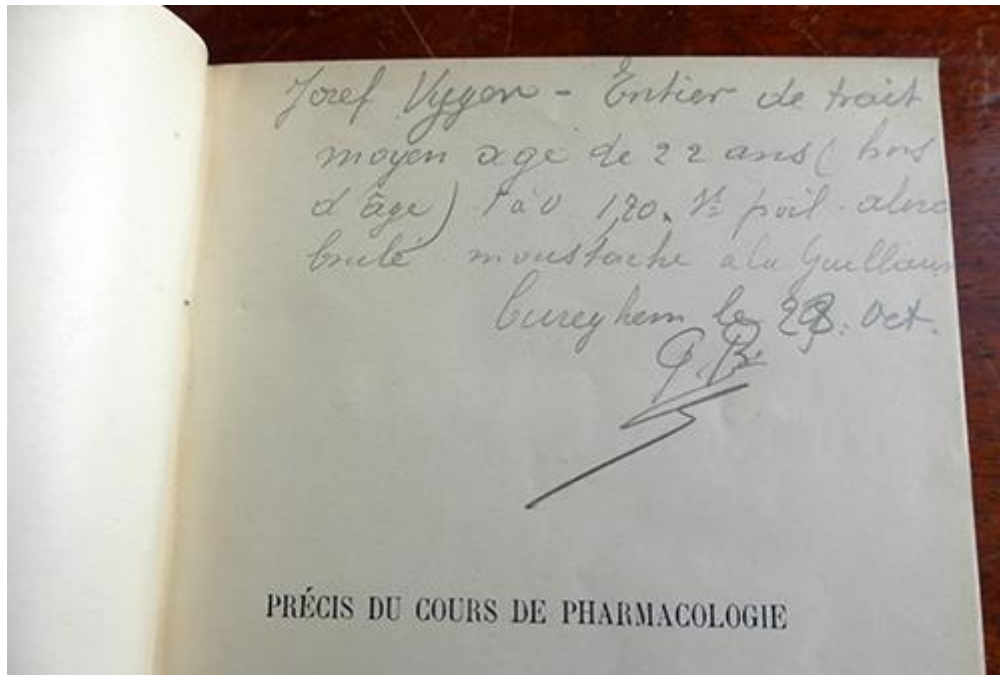 Jozef Vygen - Entier de trait
moyen agé de 22 ans (hors
d'âge) 1,70. poil
brulé moustache a la Guillaume
Cureghem le 28. Oct.
PRÉCIS DU COURS DE PHARMACOLOGIE